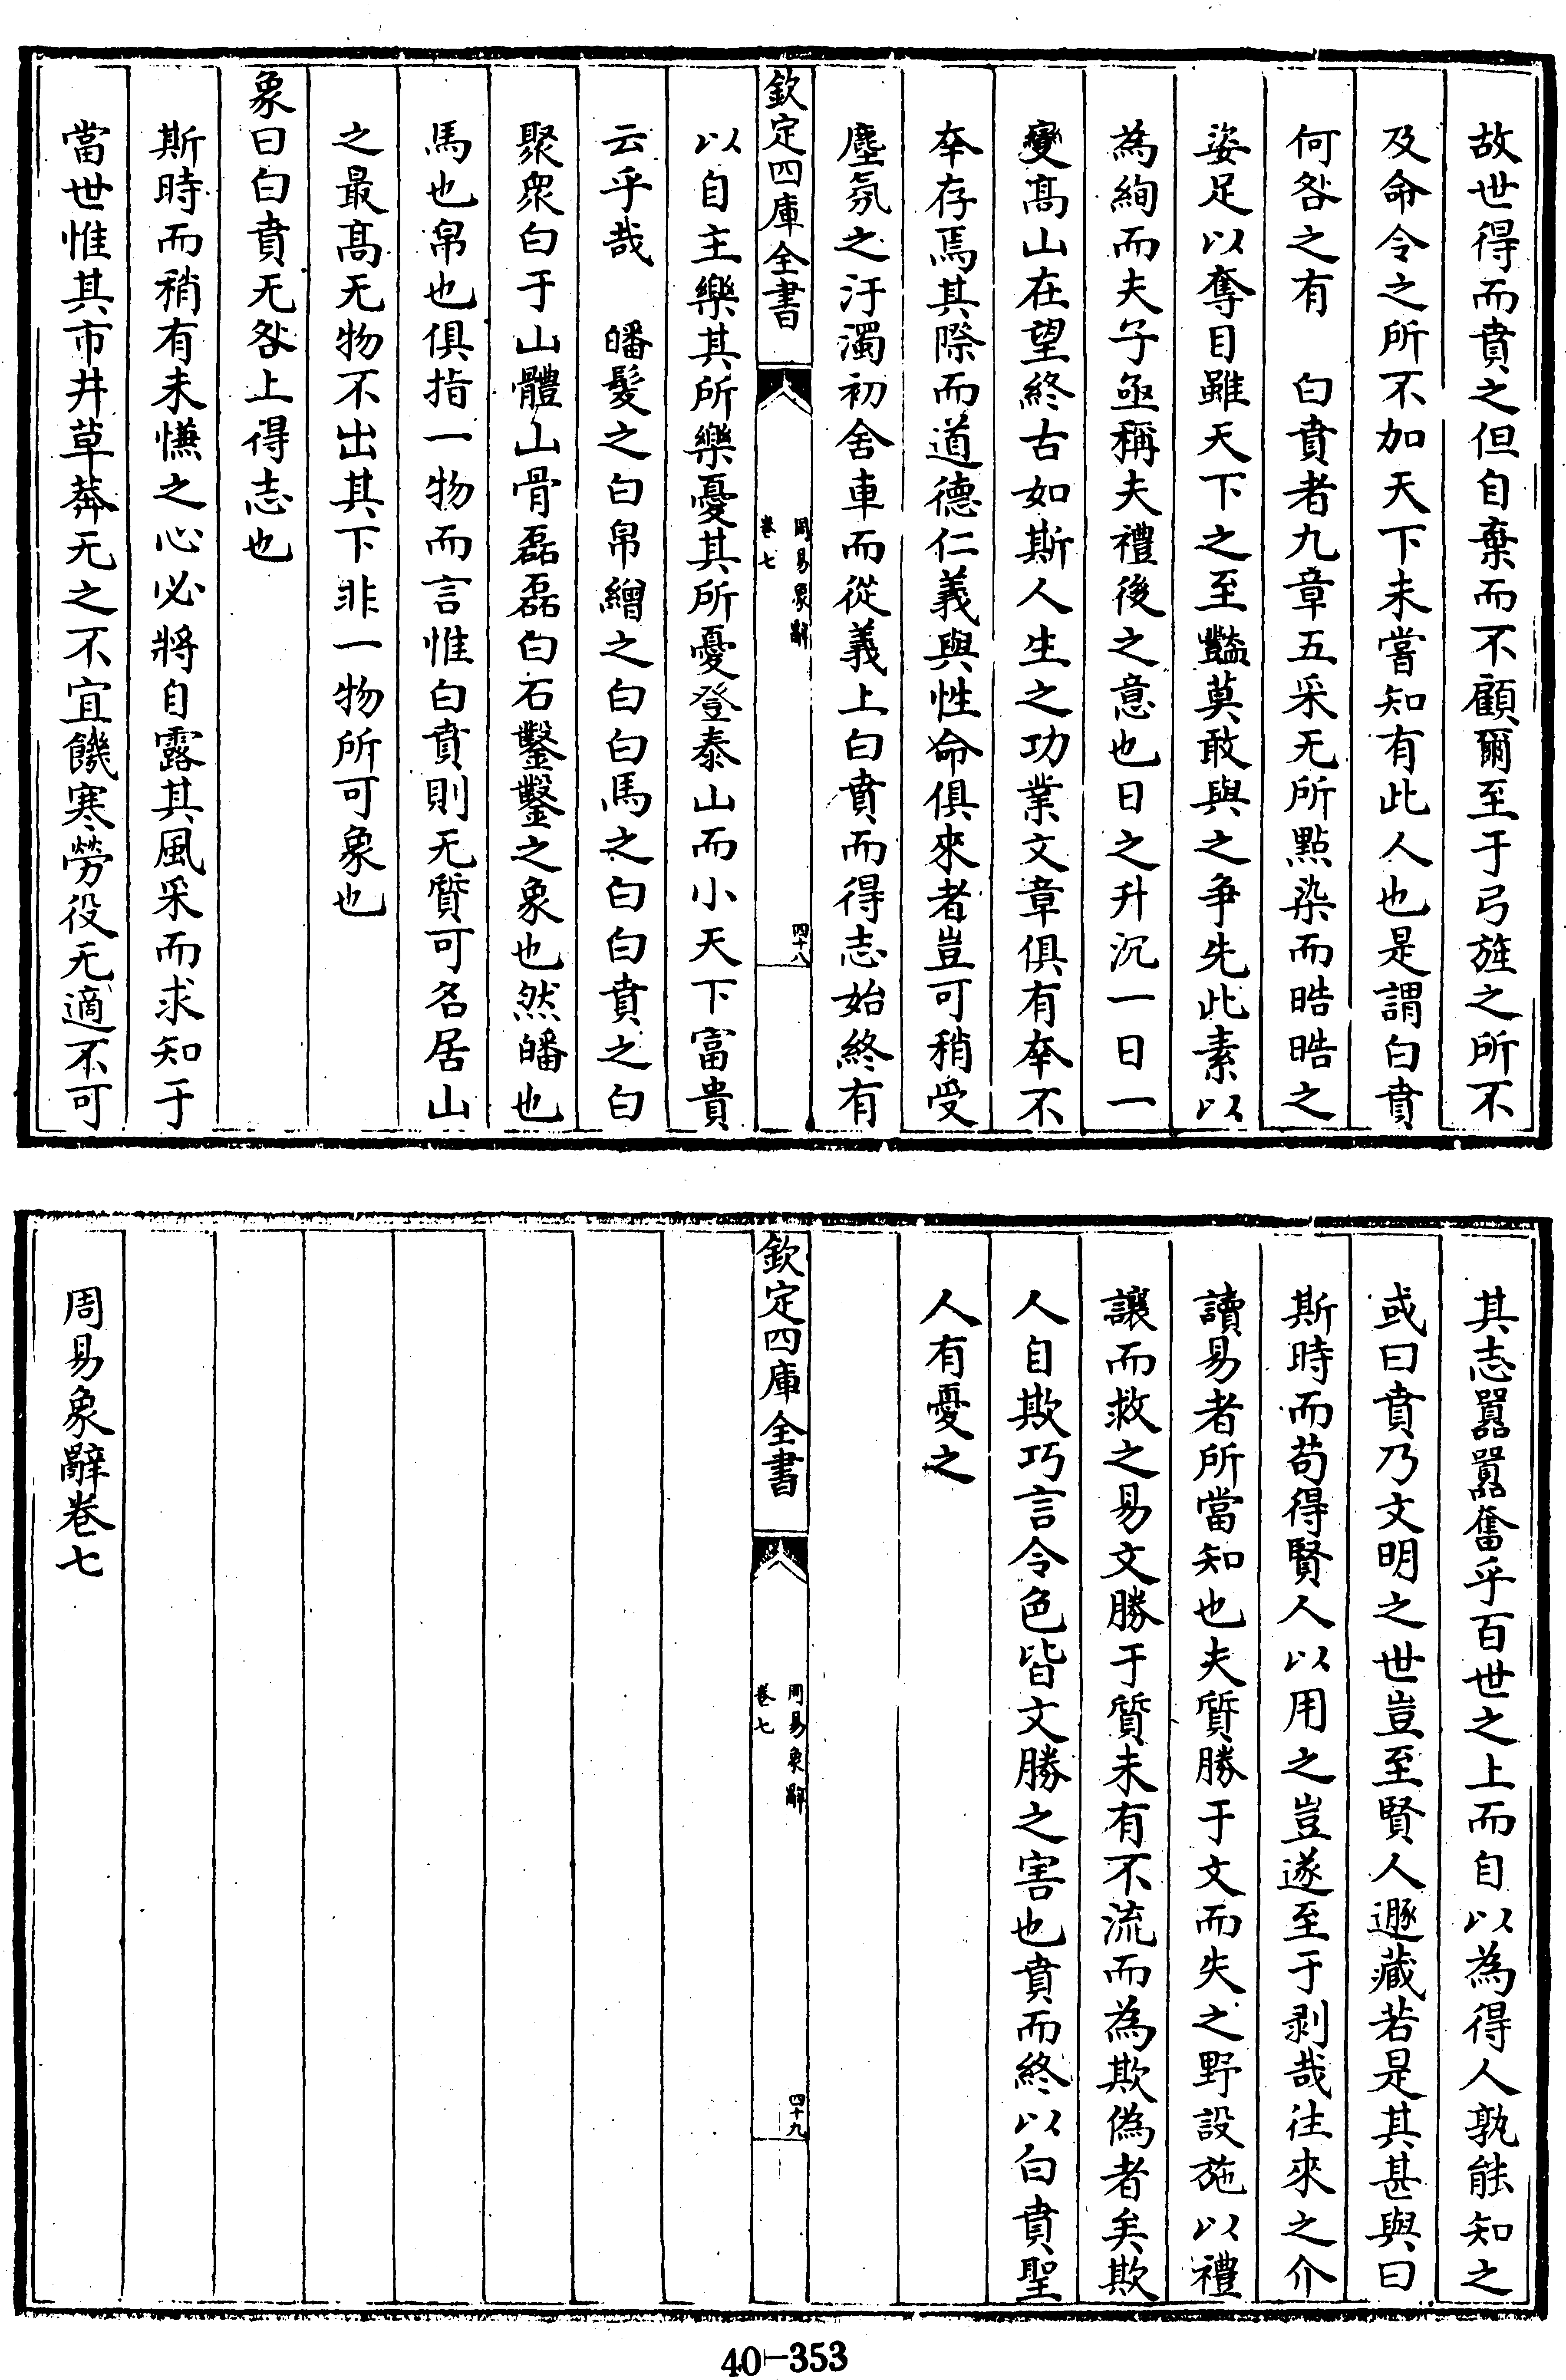 故世得而賁之但自棄而不顧爾至于弓旌之所不
及命令之所不加天下未嘗知有此人也是謂白賁
何咎之有　白賁者九章五采无所點染而皓皓之
姿足以奪目雖天下之至豔莫敢與之争先此素以
為絢而夫子亟稱夫禮後之意也日之升沉一日一
變髙山在望終古如斯人生之功業文章俱有夲不
夲存焉其際而道德仁義與性命俱來者豈可稍受
塵氛之汙濁初舍車而從義上白賁而得志始終有
欽定四庫全書
周易象辭
卷七
四十八
以自主樂其所樂憂其所憂登泰山而小天下富貴
云乎哉　皤髮之白帛繒之白白馬之白白賁之白
聚衆白于山體山骨磊磊白石鑿鑿之象也然皤也
馬也帛也俱指一物而言惟白賁則无質可名居山
之最髙无物不出其下非一物所可象也
象曰白賁无咎上得志也
斯時而稍有未慊之心必將自露其風采而求知于
當世惟其市井草莽无之不宜饑寒勞役无適不可
其志囂囂奮乎百世之上而自以為得人孰能知之
或曰賁乃文明之世豈至賢人遯藏若是其甚與曰
斯時而苟得賢人以用之豈遂至于剥哉往來之介
讀易者所當知也夫質勝于文而失之野設施以禮
讓而救之易文勝于質未有不流而為欺偽者矣欺
人自欺巧言令色皆文勝之害也賁而終以白賁聖
人有憂之
欽定四庫全書
周易象辭
卷七
四十九
周易象辭卷七
40-353